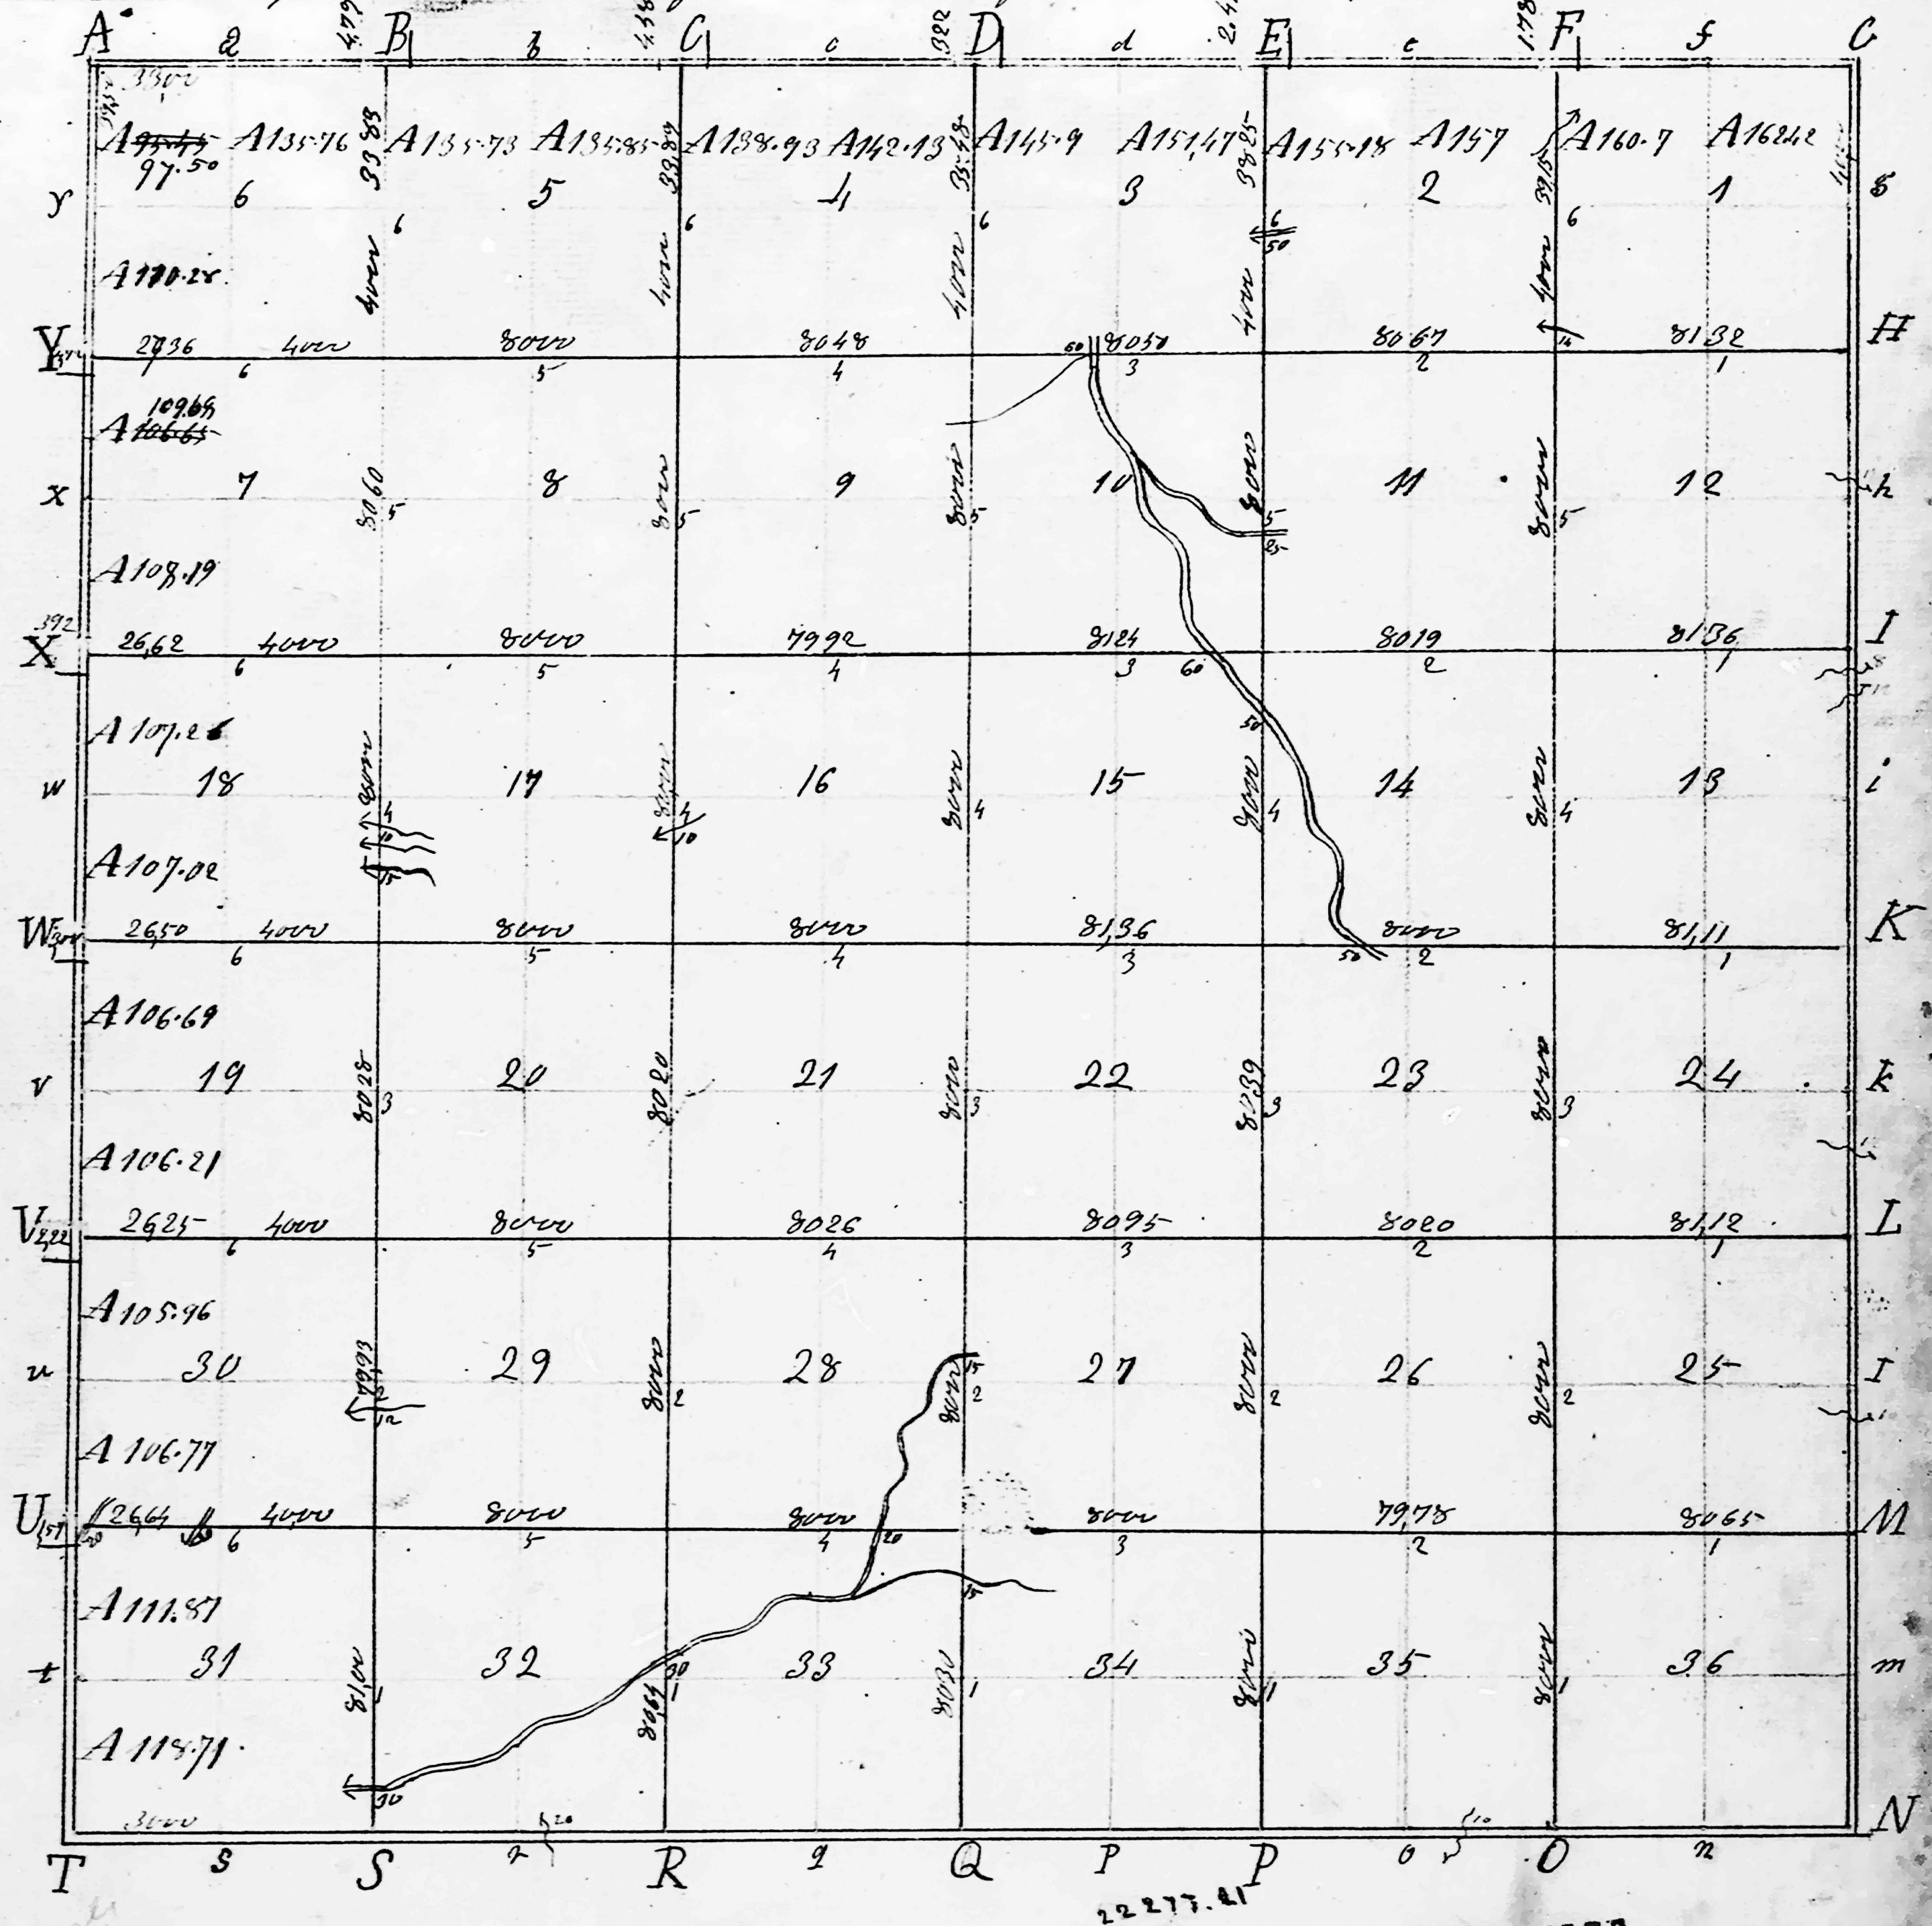 A a 4.79 B b 4.58 C c 322 D d E e 178 F f G
3300
A 95.45 A135.76 A135.73 A135.85 A138.93 A142.13 A145.9 A151,47 A155.18 A157 A160.7 A162.42
97.50
3383 33,89 35.58 3825 39,15
y 6 5 4 3 2 1 g
6 6 6 6 6
50
A110.28
4000 4000 4000 4000 4000
Y 2736 4000 8000 8048 60 8050 8067 14 8132 H
6 5 4 3 2 1
109.69
A 106.65
x 7 8 9 10 11 12 h
8060 8000 8000 8000 8000
5 5 5 5 5
25
A108.19
392
X 26,62 4000 8000 7992 8124 8019 8136 I
6 5 4 3 60 2 1
50
A107.26
w 18 17 16 15 14 13 i
8000 8000 8000 8000 8000
4 4 4 4 4
10 10
15
A107.02
W 26,50 4000 8000 8000 81,36 8000 81,11 K
6 5 4 3 50 2 1
A106.69
v 19 20 21 22 23 24 k
8028 8020 8000 8039 8000
3 3 3 3
A106.21
V 2,22 2625 4000 8000 8026 8095 8020 81,12 L
6 5 4 3 2 1
A105.96
u 30 29 28 27 26 25 I
7993 8000 8000 8000 8000
15
2 2 2 2 2
12
A106.77
U 26,64 4000 8000 8000 8000 79,78 8065 M
6 5 4 20 3 2 1
15
A111.87
t 31 32 33 34 35 36 m
30
81,00 8064 8030 8000 8000
1 1 1 1 1
A118.71
30
3000 20 10
N
T s S r R q Q p P o O n
22277.21